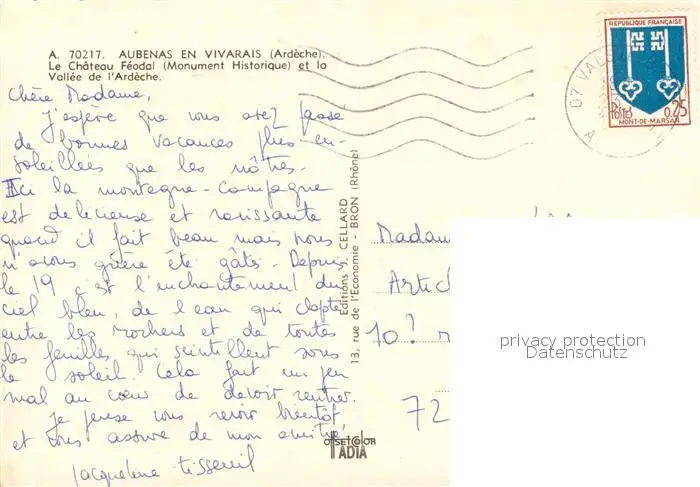 A. 70217. AUBENAS EN VIVARAIS (Ardèche).
Le Château Féodal (Monument Historique) et la
Vallée de l'Ardèche.
Chère Madame,
J'espère que vous avez passé
de bonnes vacances plus en-
soleillées que les nôtres.
Ici la montagne-campagne
est délicieuse et ravissante
quand il fait beau mais nous
n'avons guère été gâtés. Depuis
le 19 c'est l'enchantement du
ciel bleu, de l'eau qui clapote
entre les rochers et de toutes
les feuilles qui scintillent sous
le soleil. Cela fait un peu
mal au cœur de devoir rentrer.
Je pense vous revoir bientôt
et vous assure de mon amitié.
Jacqueline Tisseuil
Editions J. CELLARD
13, rue de l'Economie - BRON (Rhône)
OFFSET COLOR
ADIA
REPUBLIQUE FRANÇAISE
POSTES
0,25
MONT-DE-MARSAN
07 VALS
A
Madam
Artic
10?
72
privacy protection
Datenschutz